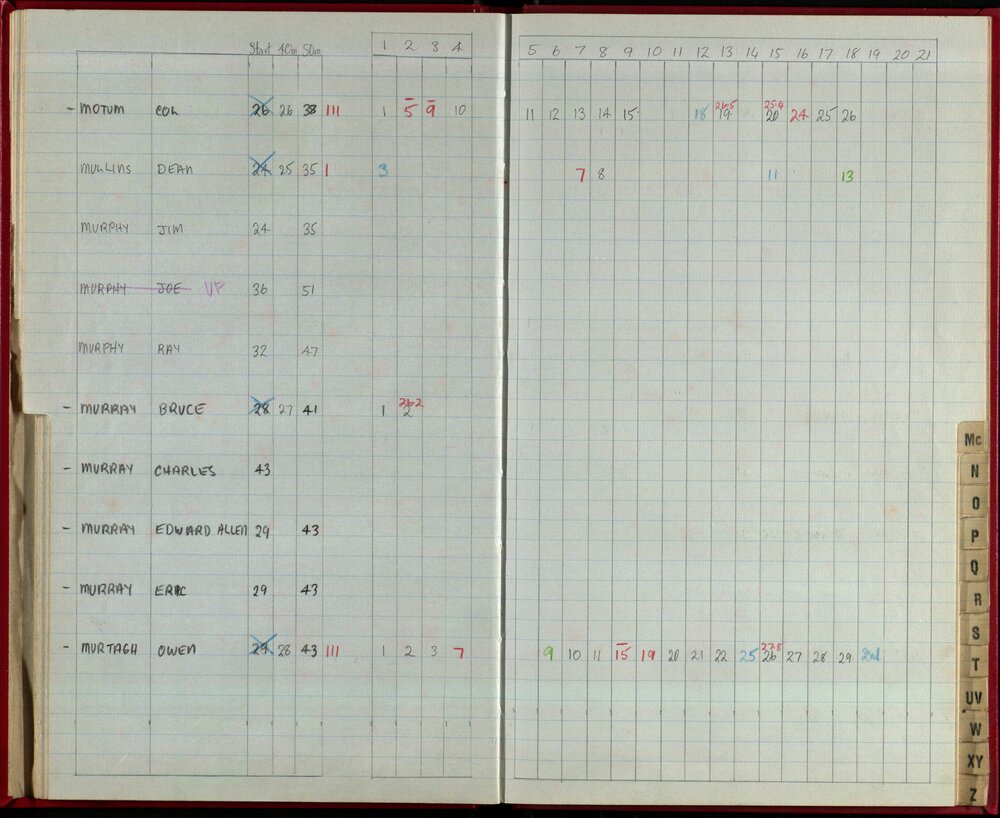 Start 40m 50m 1 2 3 4 5 6 7 8 9 10 11 12 13 14 15 16 17 18 19 20 21
- MOTUM COL 26 26 38 III 1 5 9 10 11 12 13 14 15 18 21.5 19 25.4 20 24 25 26
MULLINS DEAN 24 25 35 I 3 7 8 11 13
MURPHY JIM 24 35
MURPHY JOE VF 36 51
MURPHY RAY 32 47
- MURRAY BRUCE 28 27 41 1 26.2 2
- MURRAY CHARLES 43
- MURRAY EDWARD ALLEN 29 43
- MURRAY ERIC 29 43
- MURTAGH OWEN 29 28 43 III 1 2 3 7 9 10 11 15 19 20 21 22 25 27.8 26 27 28 29 2nd
Mc
N
O
P
Q
R
S
T
UV
W
XY
Z